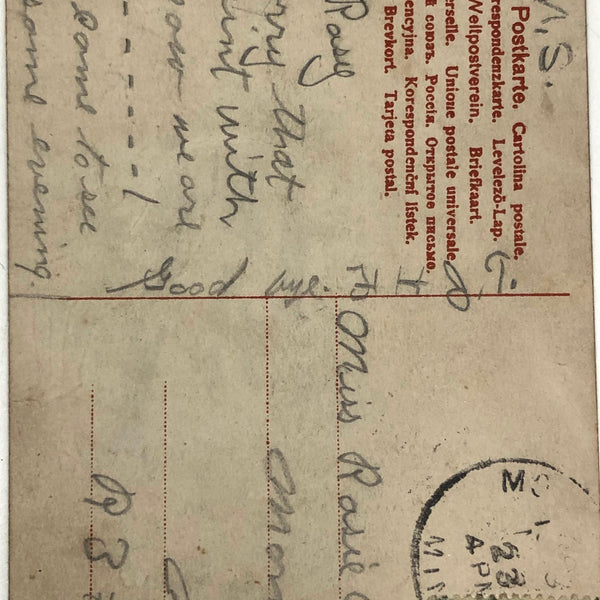 M.S.
Postkarte. Cartolina postale.
respondenzkarte. Levelező-Lap.
Weltpostverein. Briefkaart.
erselle. Unione postale universale
союзъ. Россія. Открытое письмо.
encyjna. Korespondenční lístek.
Brevkort. Tarjeta postal.
Rosy
rry that
int with
now we are
------!
come to see
some evening.
Good bye.
to
Miss Rosie
Mor
R 3
MO
23
4 PM
MIN